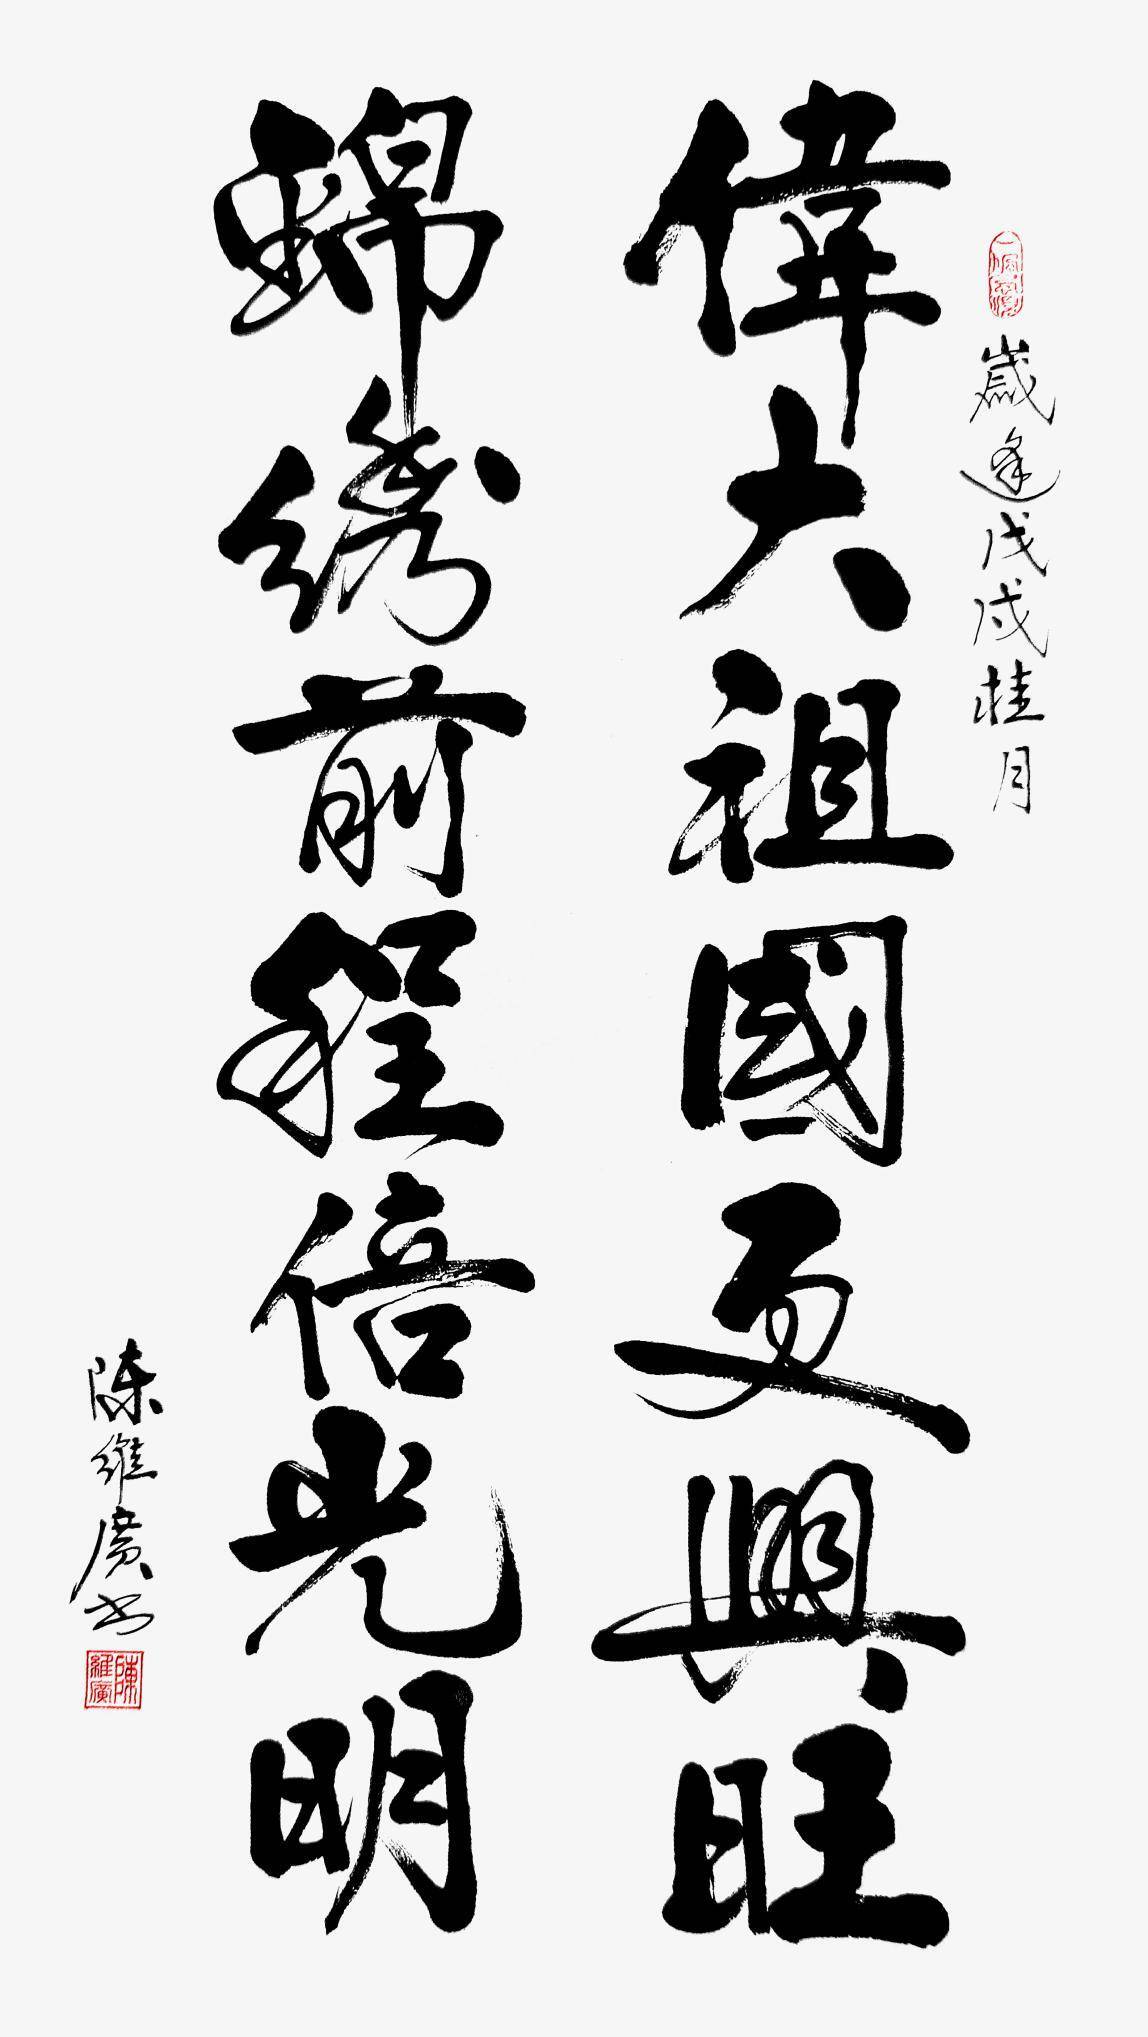 歲逢戊戌桂月
偉大祖國更興旺
錦绣前程倍光明
陈維廣书
陳維廣